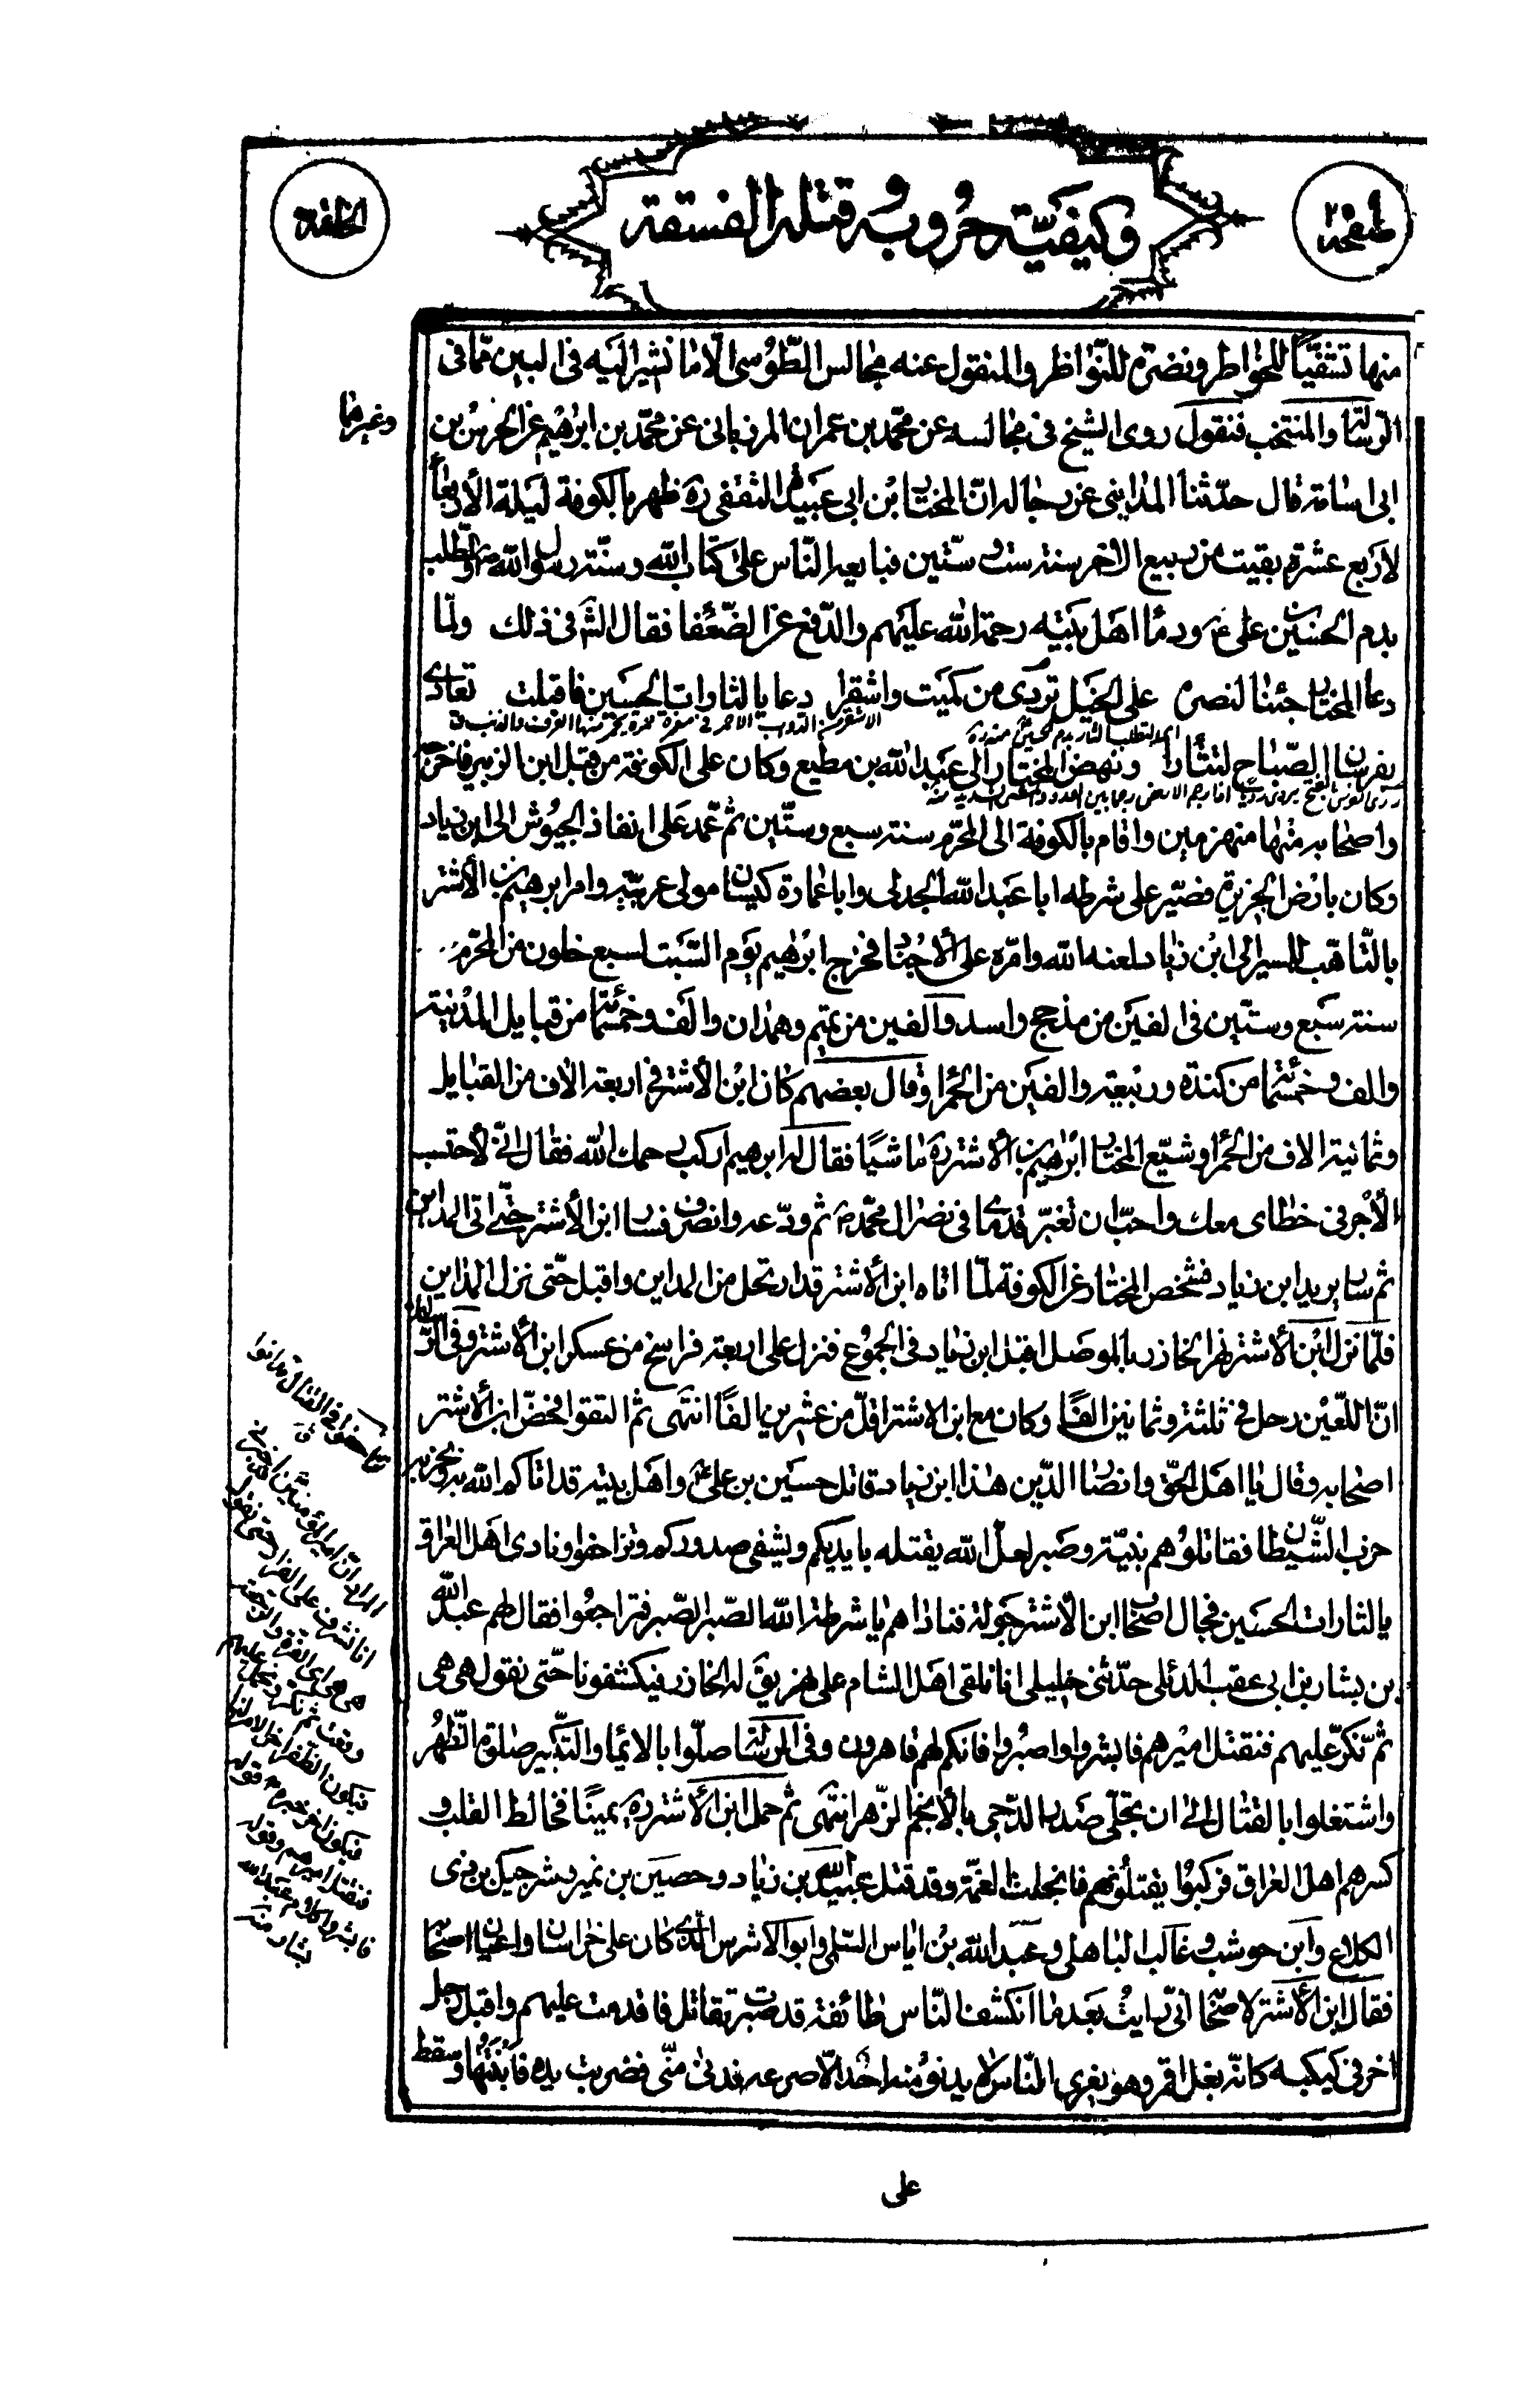 صفحه ٢٠٩
وكيفيّة حروبه وقتله الفسقة
الخلفه
منها تشفّياً للخواطر ونضرة للنّواظر والمنقول عنه مجالس الطّوسى الّا ما نشير اليه فى البين ممّا فى
الرّسالة والمنتخب فنقول روى الشيخ فى مجالسه عن محمّد بن عمران المرزبانى عن محمّد بن ابرٰهيم عن الحرث بن
وغيرها
ابى اسامة قال حدّثنا المداينى عن رجاله انّ المختار بن ابى عبيدة الثقفى ره ظهر بالكوفة ليلة الأربعاء
لاربع عشرة بقيت من ربيع الاخر سنة ست وستّين فبايعه النّاس على كتاب الله وسنّة رسول الله ص والطلب
بدم الحسين بن على ع ودماء اهل بيته رحمة الله عليهم والدّفع عن الضّعفا فقال الشّ فى ذلك ولمّا
دعا المختار جئنا لنصره على الخيل تردى من كميت واشقرا دعا يا لثارات الحسين فاقبلت تعادى
الاشقر من الدواب الاحمر فى حمرة منها العرف والذنب ق
اى لطلب الثار بدم الحسين ع منه ره
بفرسان الصّباح لتثأرا ونهض المختار الى عبد الله بن مطيع وكان على الكوفة من قبل ابن الزبير فاخرجه
ردى الفرس بالفتح يردى اذا رجم الارض رجما بين العدو والمشى الشديد منه
واصحابه منها منهزمين واقام بالكوفة الى المحرّم سنة سبع وستّين ثم عمد على انفاذ الجيوش الى ابن زياد
وكان بارض الجزيرة فصيّر على شرطه ابا عبد الله الجدلى وابا عمارة كيسان مولى عرينة وامر ابرهيم بن الأشتر
بالتّاهّب للمسير الى ابن زياد لعنه الله وامّره على الأجناد فخرج ابرٰهيم يوم السّبت لسبع خلون من المحرّم
سنة سبع وستّين فى الفين من مذحج واسد والفين من تميم وهمدان والف وخمسمائة من قبايل المدينة
والف وخمسمائة من كندة وربيعة والفين من الحمرا وقال بعضهم كان ابن الأشتر فى اربعة الاف من القبايل
وثمانية الاف من الحمرا وشيّع المختار ابرٰهيم بن الأشتر ره ماشيًا فقال له ابرهيم اركب رحمك الله فقال انّى لأحتسب
الأجر فى خطاى معك واحبّ ان تغبّر قدماى فى نصر ال محمّد ص ثم ودّعه وانصرف فسار ابن الأشتر حتّى اتى المداين
ثم سار يريد ابن زياد فشخص المختار عن الكوفة لمّا اتاه ابن الأشتر قد ارتحل من المداين واقبل حتّى نزل المداين
فلمّا نزل ابن الأشتر نهر الخازر بالموصل اقبل ابن زياد فى الجموع فنزل على اربعة فراسخ من عسكر ابن الأشتر وفى الرّسالة
انّ اللّعين رحل فى ثلثة وثمانين الفًا وكان مع ابن الاشتر اقلّ من عشرين الفًا انتهى ثم التقوا فحضّ ابن الأشتر
اصحابه وقال يا اهل الحقّ وانصار الدّين هذا ابن زياد قاتل حسين بن على ع واهل بيته قد اتاكم الله به وبحزبه
حزب الشّيطان فقاتلوهم بنيّة وصبر لعلّ الله يقتله بايديكم ويشفى صدوركم وتزاحفوا ونادى اهل العراق
يا لثارات الحسين فجال اصحاب ابن الأشتر جولة فناداهم يا شرطة الله الصّبر الصّبر فتراجعوا فقال لهم عبد الله
بن بشار بن ابى عقب الدئلى حدّثنى خليلى انا نلقى اهل الشام على نهر يق له الخازر فيكشفونا حتّى نقول هى هى
ثم نكرّ عليهم فنقتل اميرهم فابشروا واصبروا فانكم لهم قاهرون وفى الرسالة صلّوا بالايماء والتكبير صلوة الظهر
واشتغلوا بالقتال الى ان تجلّى صدر الدّجى بالأنجم الزّهر انتهى ثم حمل ابن الأشتر ره يمينًا فخالط القلب و
كسرهم اهل العراق فركبوهم يقتلونهم فانجلت الغمّة وقد قتل عبيد الله بن زياد وحصين بن نمير وشرحبيل بن ذى
الكلاع وابن حوشب وغالب الباهلى وعبد الله بن اياس السّلمى وابو الاشرس الّذى كان على خراسان واعيان اصحابه
فقال ابن الأشتر لاصحابه انّى رايت بعد ما انكشف النّاس طائفة قد صبرت تقاتل فاقدمت عليهم واقبل رجل
اخر فى كبكبه كانّه بغل اقمر وهو يغرى النّاس لا يدنو منه احد الّا صرعه فدنى منّى فضربت يده فابنتها وسقط
على
تزاحفوا فى القتال تدانوا
ق
المراد انّ امير المؤمنين ع اخبرنى
حتى نقول
هى هى اى
ثم نكر عليهم
فيكون الظفر اخر الامر لنا
فيكون اخر خبره ع قوله
فنقتل اميرهم وقوله
فابشروا كلام عبد الله
بن بشار منه